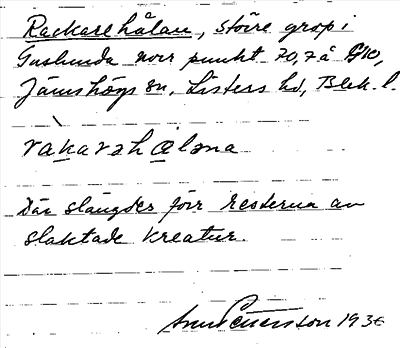 Rackarehålan, större grop i
Gushunda norr punkt 70,7 å GK,
Jämshögs sn, Listers hd, Blek. l.
rakarahålana
Där slängdes förr resterna av
slaktade kreatur.
Pettersson 1936